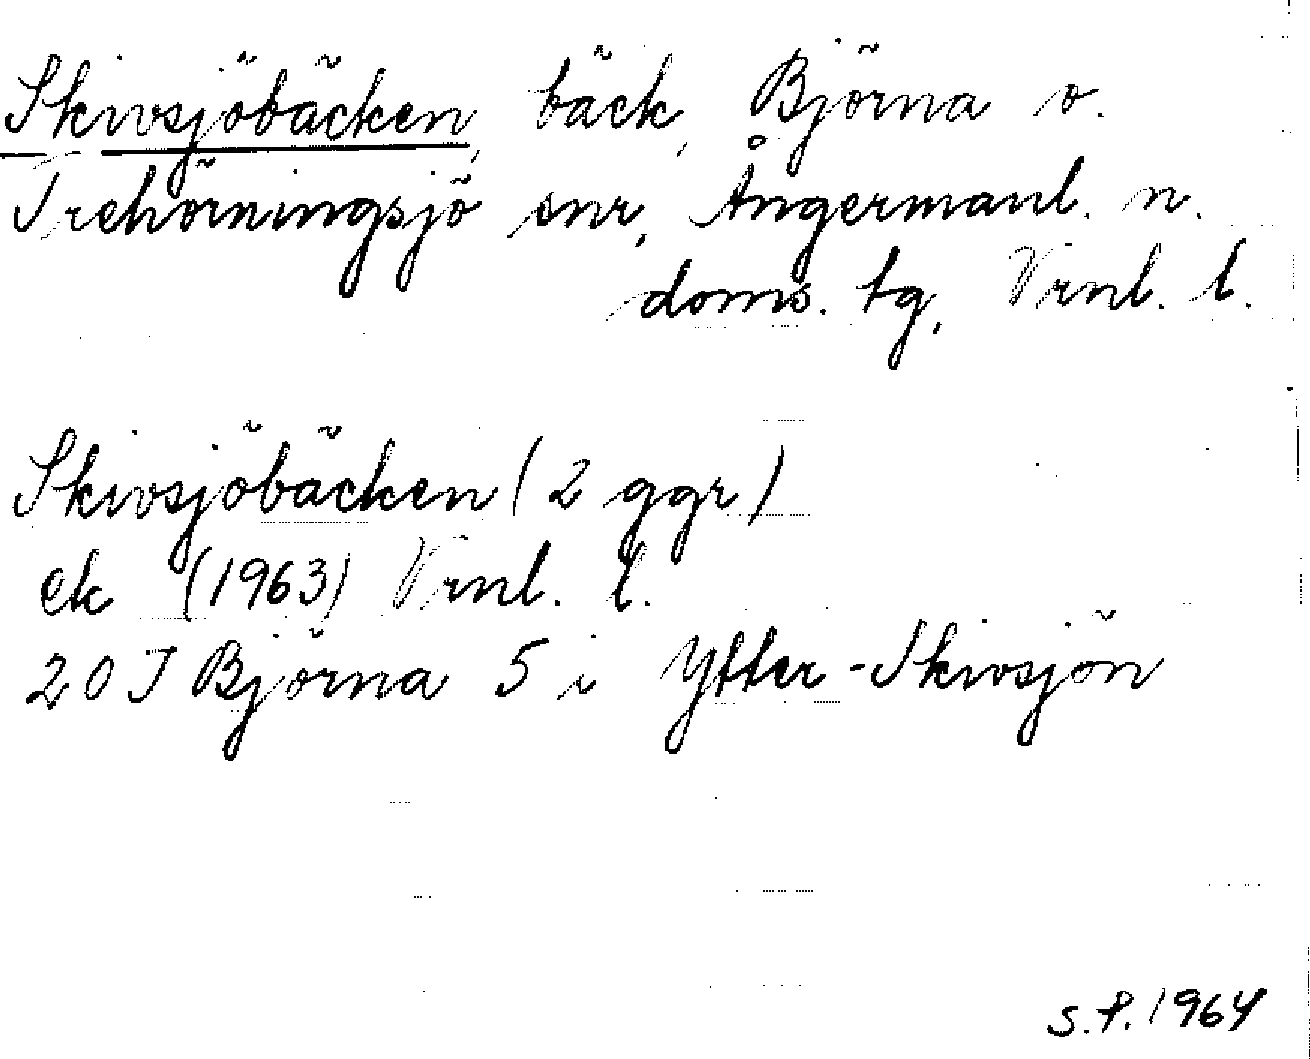 Skivsjöbäcken, bäck, Björna o.
Trehörningsjö snr, Ångermanl. n.
doms. tg, Vrnl. l.
Skivsjöbäcken (2 ggr)
ek (1963) Vrnl. l.
20 J Björna 5 i Ytter-Skivsjön
S.P. 1964